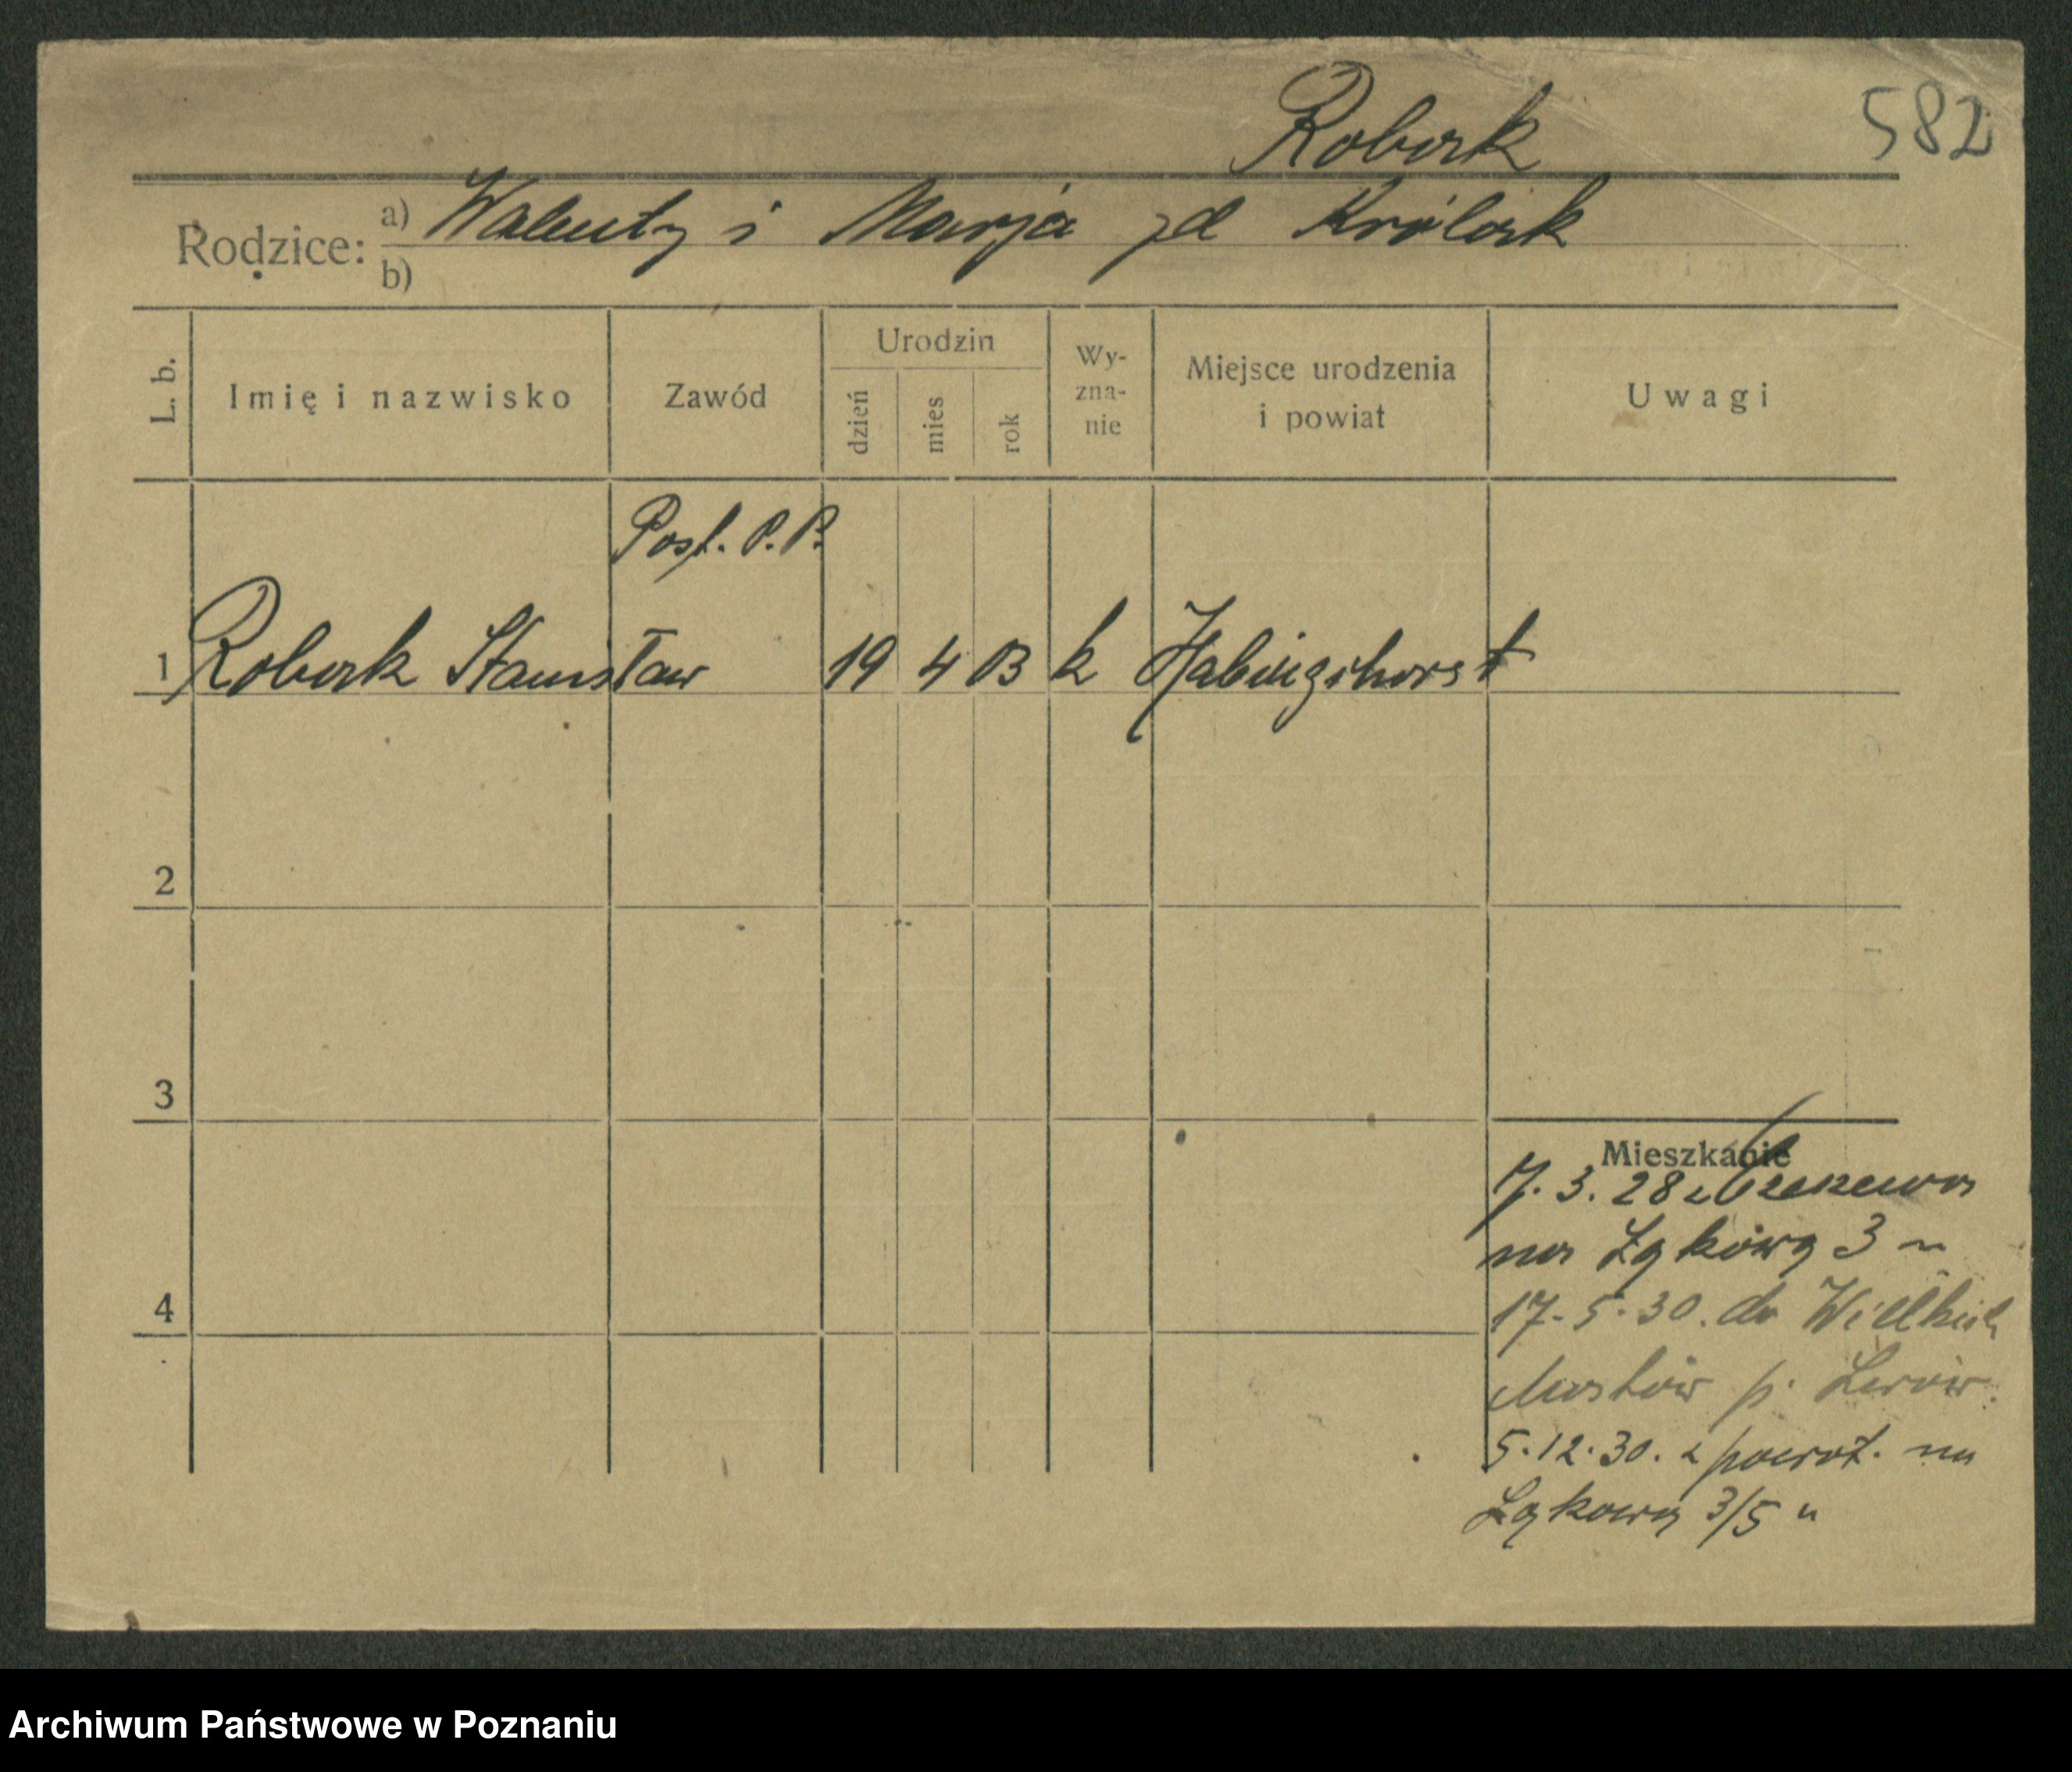 Robak
582
Rodzice: a) Walenty i Marja zd Królak
b)
L. b.
Imię i nazwisko
Zawód
Urodzin
dzień
mies
rok
Wy-
zna-
nie
Miejsce urodzenia
i powiat
Uwagi
Post. P. P.
1 Robak Stanisław 19 4 03 k Habingshorst
2
3
4
Mieszkanie
7. 3. 28 z
na Łąkową 3
17. 5. 30. do Wielkich
Mostów p. Lwów.
5. 12. 30. z powrot. na
Łąkową 3/5 "
Archiwum Państwowe w Poznaniu